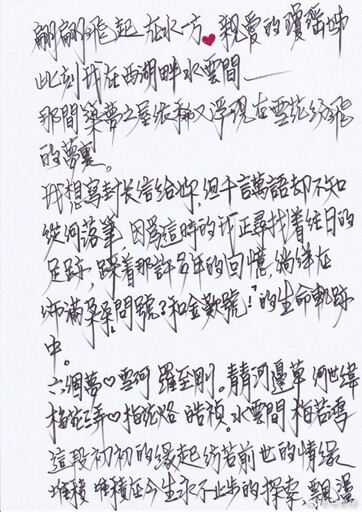 翩翩飛起 在水一方❤親愛的瓊瑤姊
此刻我在西湖畔水雲間——
那間築夢之屋依稀又浮現在雪花紛飛
的夢裏。
我想寫封長信給妳,但千言萬語却不知
從何落筆,因為這時的我正尋找着往日的
足跡,踩着那許多年的回憶,徜徉在
佈滿朵朵問號?和金歎號!的生命軌跡
中。
六個夢♡雪河 羅至剛。青青河邊草 何世緯
梅花三弄♡梅花烙 皓禎。水雲間 梅若鴻
這段初初的緣起彷若前世的情緣
堆積 堆積在今生永不止步的探索,飄盪